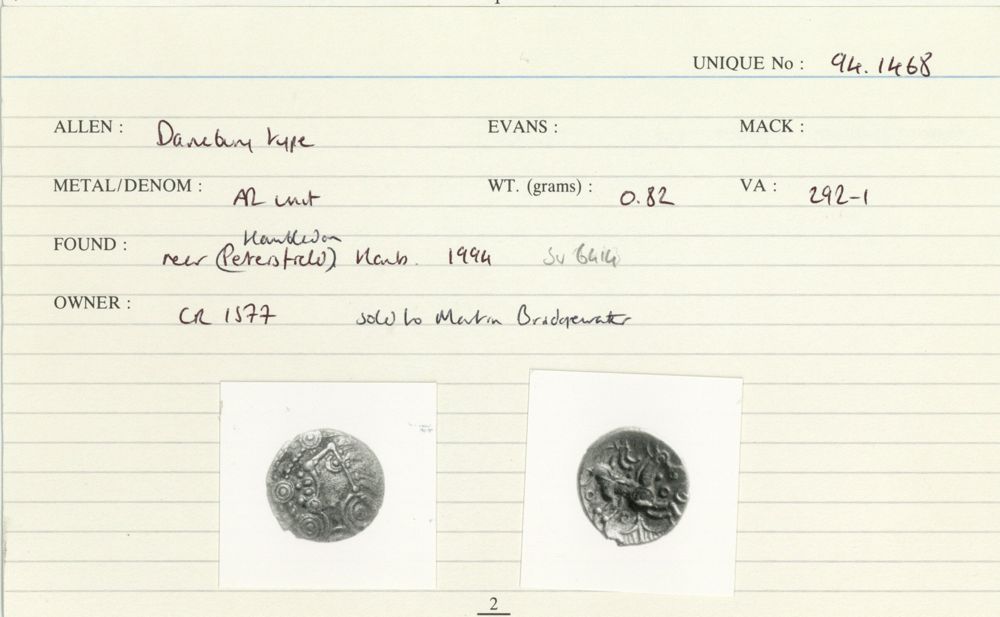 UNIQUE No : 94.1468
ALLEN : Danebury type EVANS : MACK :
METAL/DENOM : AR unit WT. (grams) : 0.82 VA : 292-1
Hambledon
FOUND : near (Petersfield) Hants. 1994 SU 6414
OWNER : CR 1577 sold to Martin Bridgewater
2